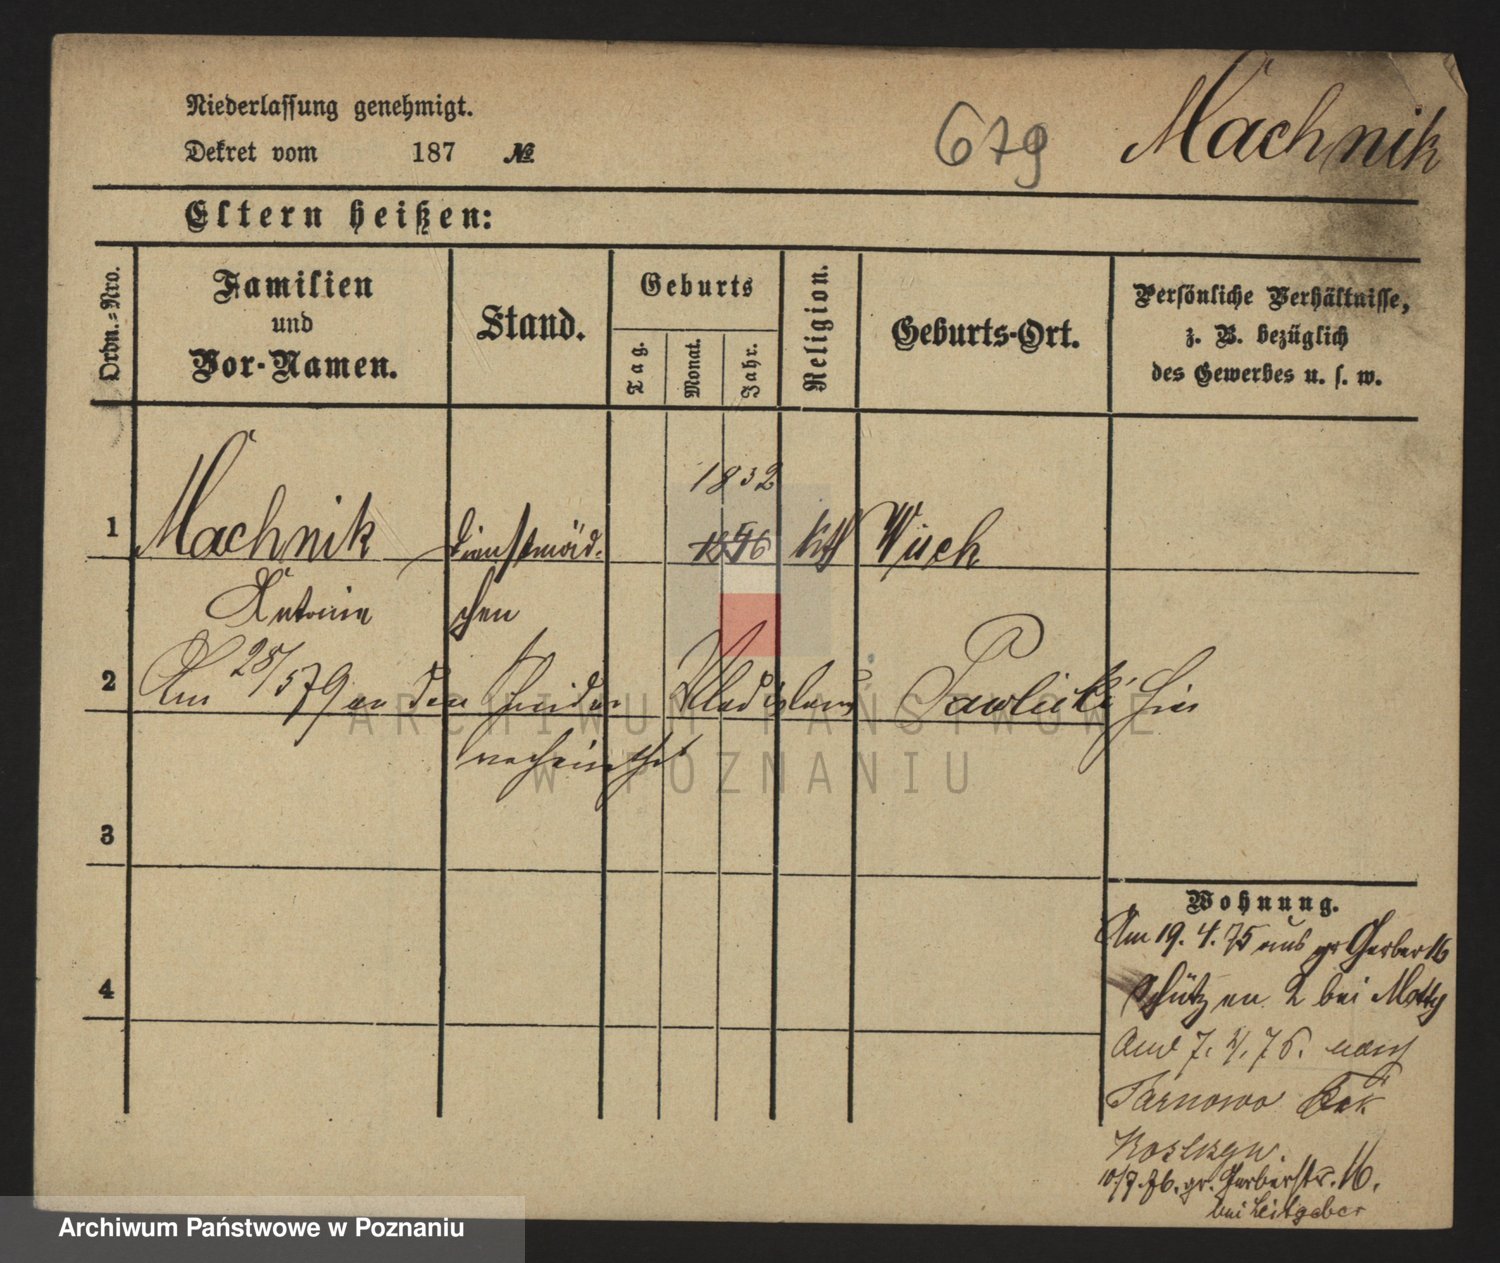 Niederlassung genehmigt.
Dekret vom 187 №
679 Machnik
Eltern heißen:
Ordn.-Nro.
Familien
und
Vor-Namen.
Stand.
Geburts
Tag.
Monat.
Jahr.
Religion.
Geburts-Ort.
Persönliche Verhältnisse,
z. B. bezüglich
des Gewerbes u. s. w.
1832
1 Machnik Dienstmäd- 1856 kth
Antonie chen
2 Am 28/5 79 an den Wladislaus Pawlicki hier
verheirathet
3
Wohnung.
Am 19. 4. 75 aus gr Gerber 16
4
Schützen 2 bei Motty
7. 4. 76. nach
Tarnowo
10/7. 76. gr. Gerberstr. 16.
bei Leitgeber
ARCHIWUM PAŃSTWOWE
W POZNANIU
Archiwum Państwowe w Poznaniu